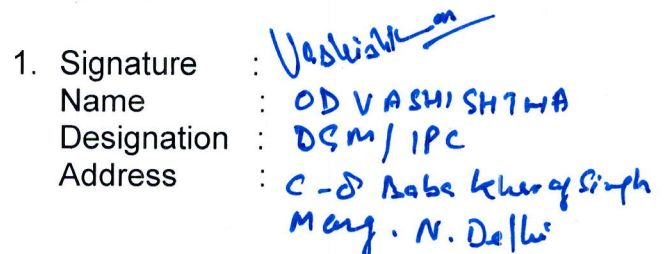 1. Signature : Vashishth
Name : OD VASHISHTHA
Designation : DGM/IPC
Address : C-8 Baba Kharag Singh
Marg. N. Delhi